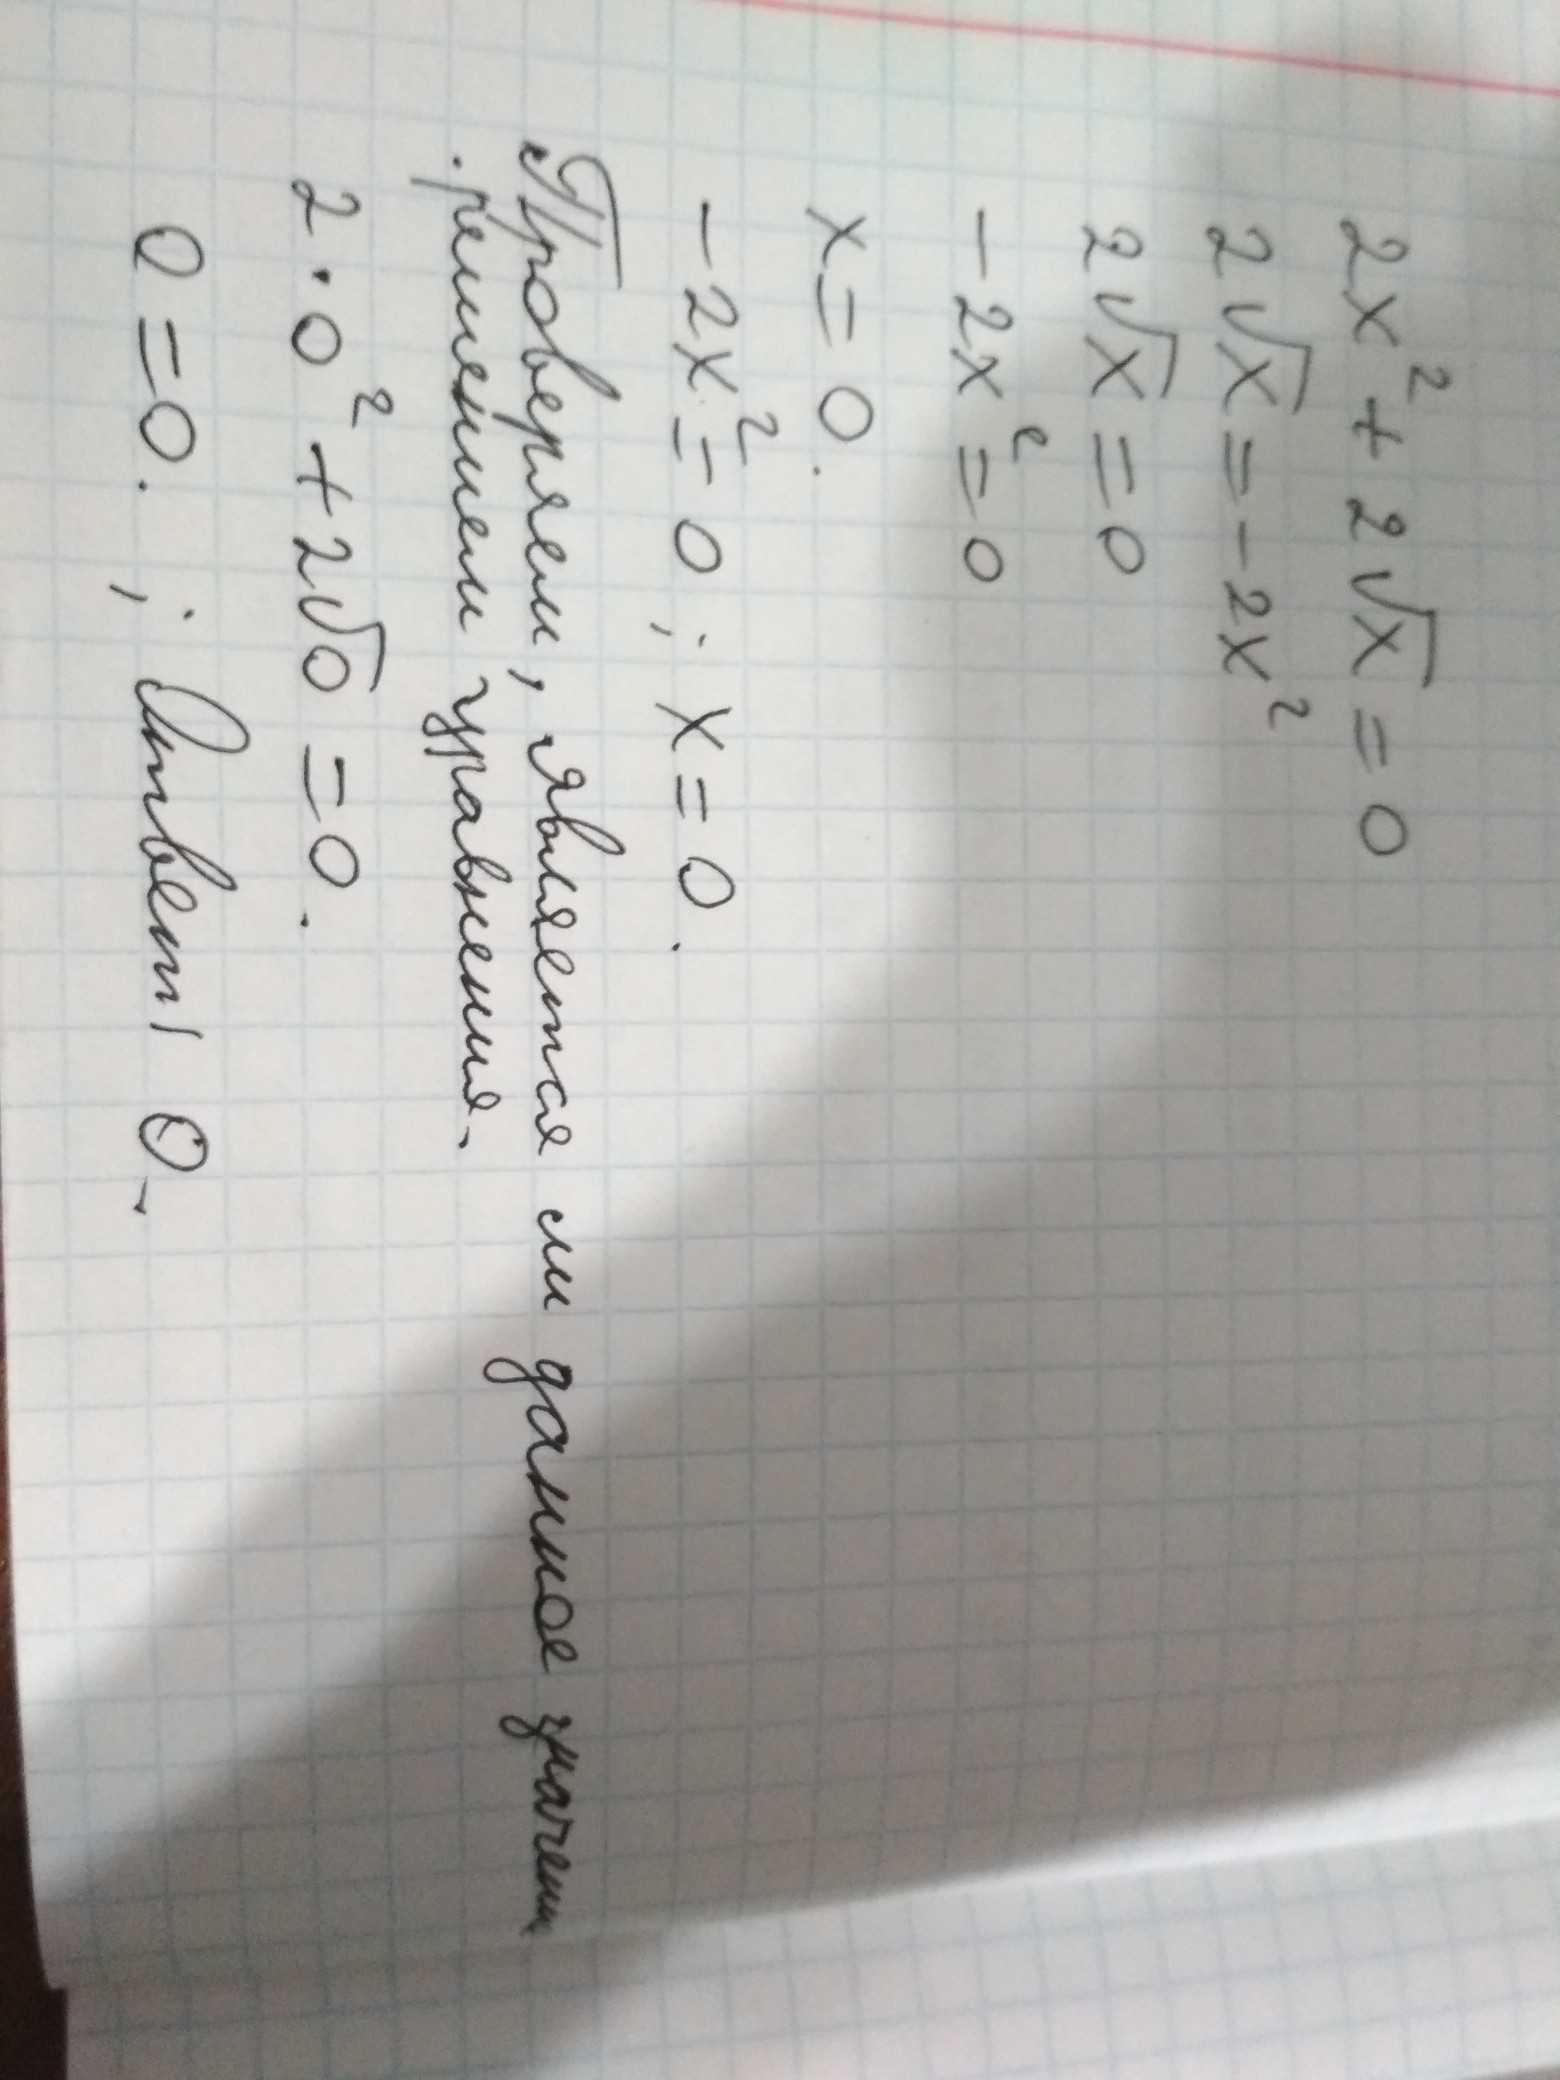 2x² + 2√x = 0
2√x = -2x²
2√x = 0
-2x² = 0
x = 0.
-2x² = 0; x = 0.
Проверяем, является ли данное значен
решением уравнения.
2·0² + 2√0 = 0.
0 = 0. ; Ответ: 0.